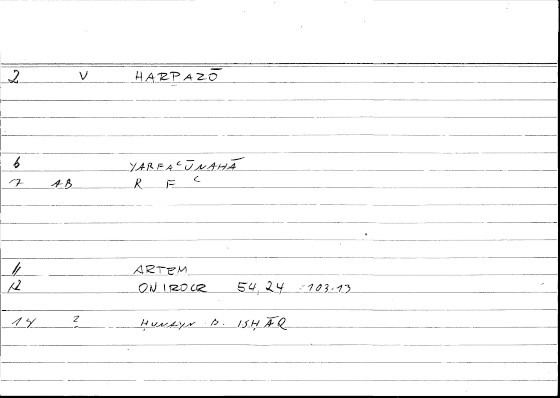 2 V HARPAZŌ
6 YARFAᶜŪNAHĀ
7 AB R F ᶜ
11 ARTEM
12 ONIROCR 54,24 : 103.13
14 2 ḤUNAYN B. ISḤĀQ